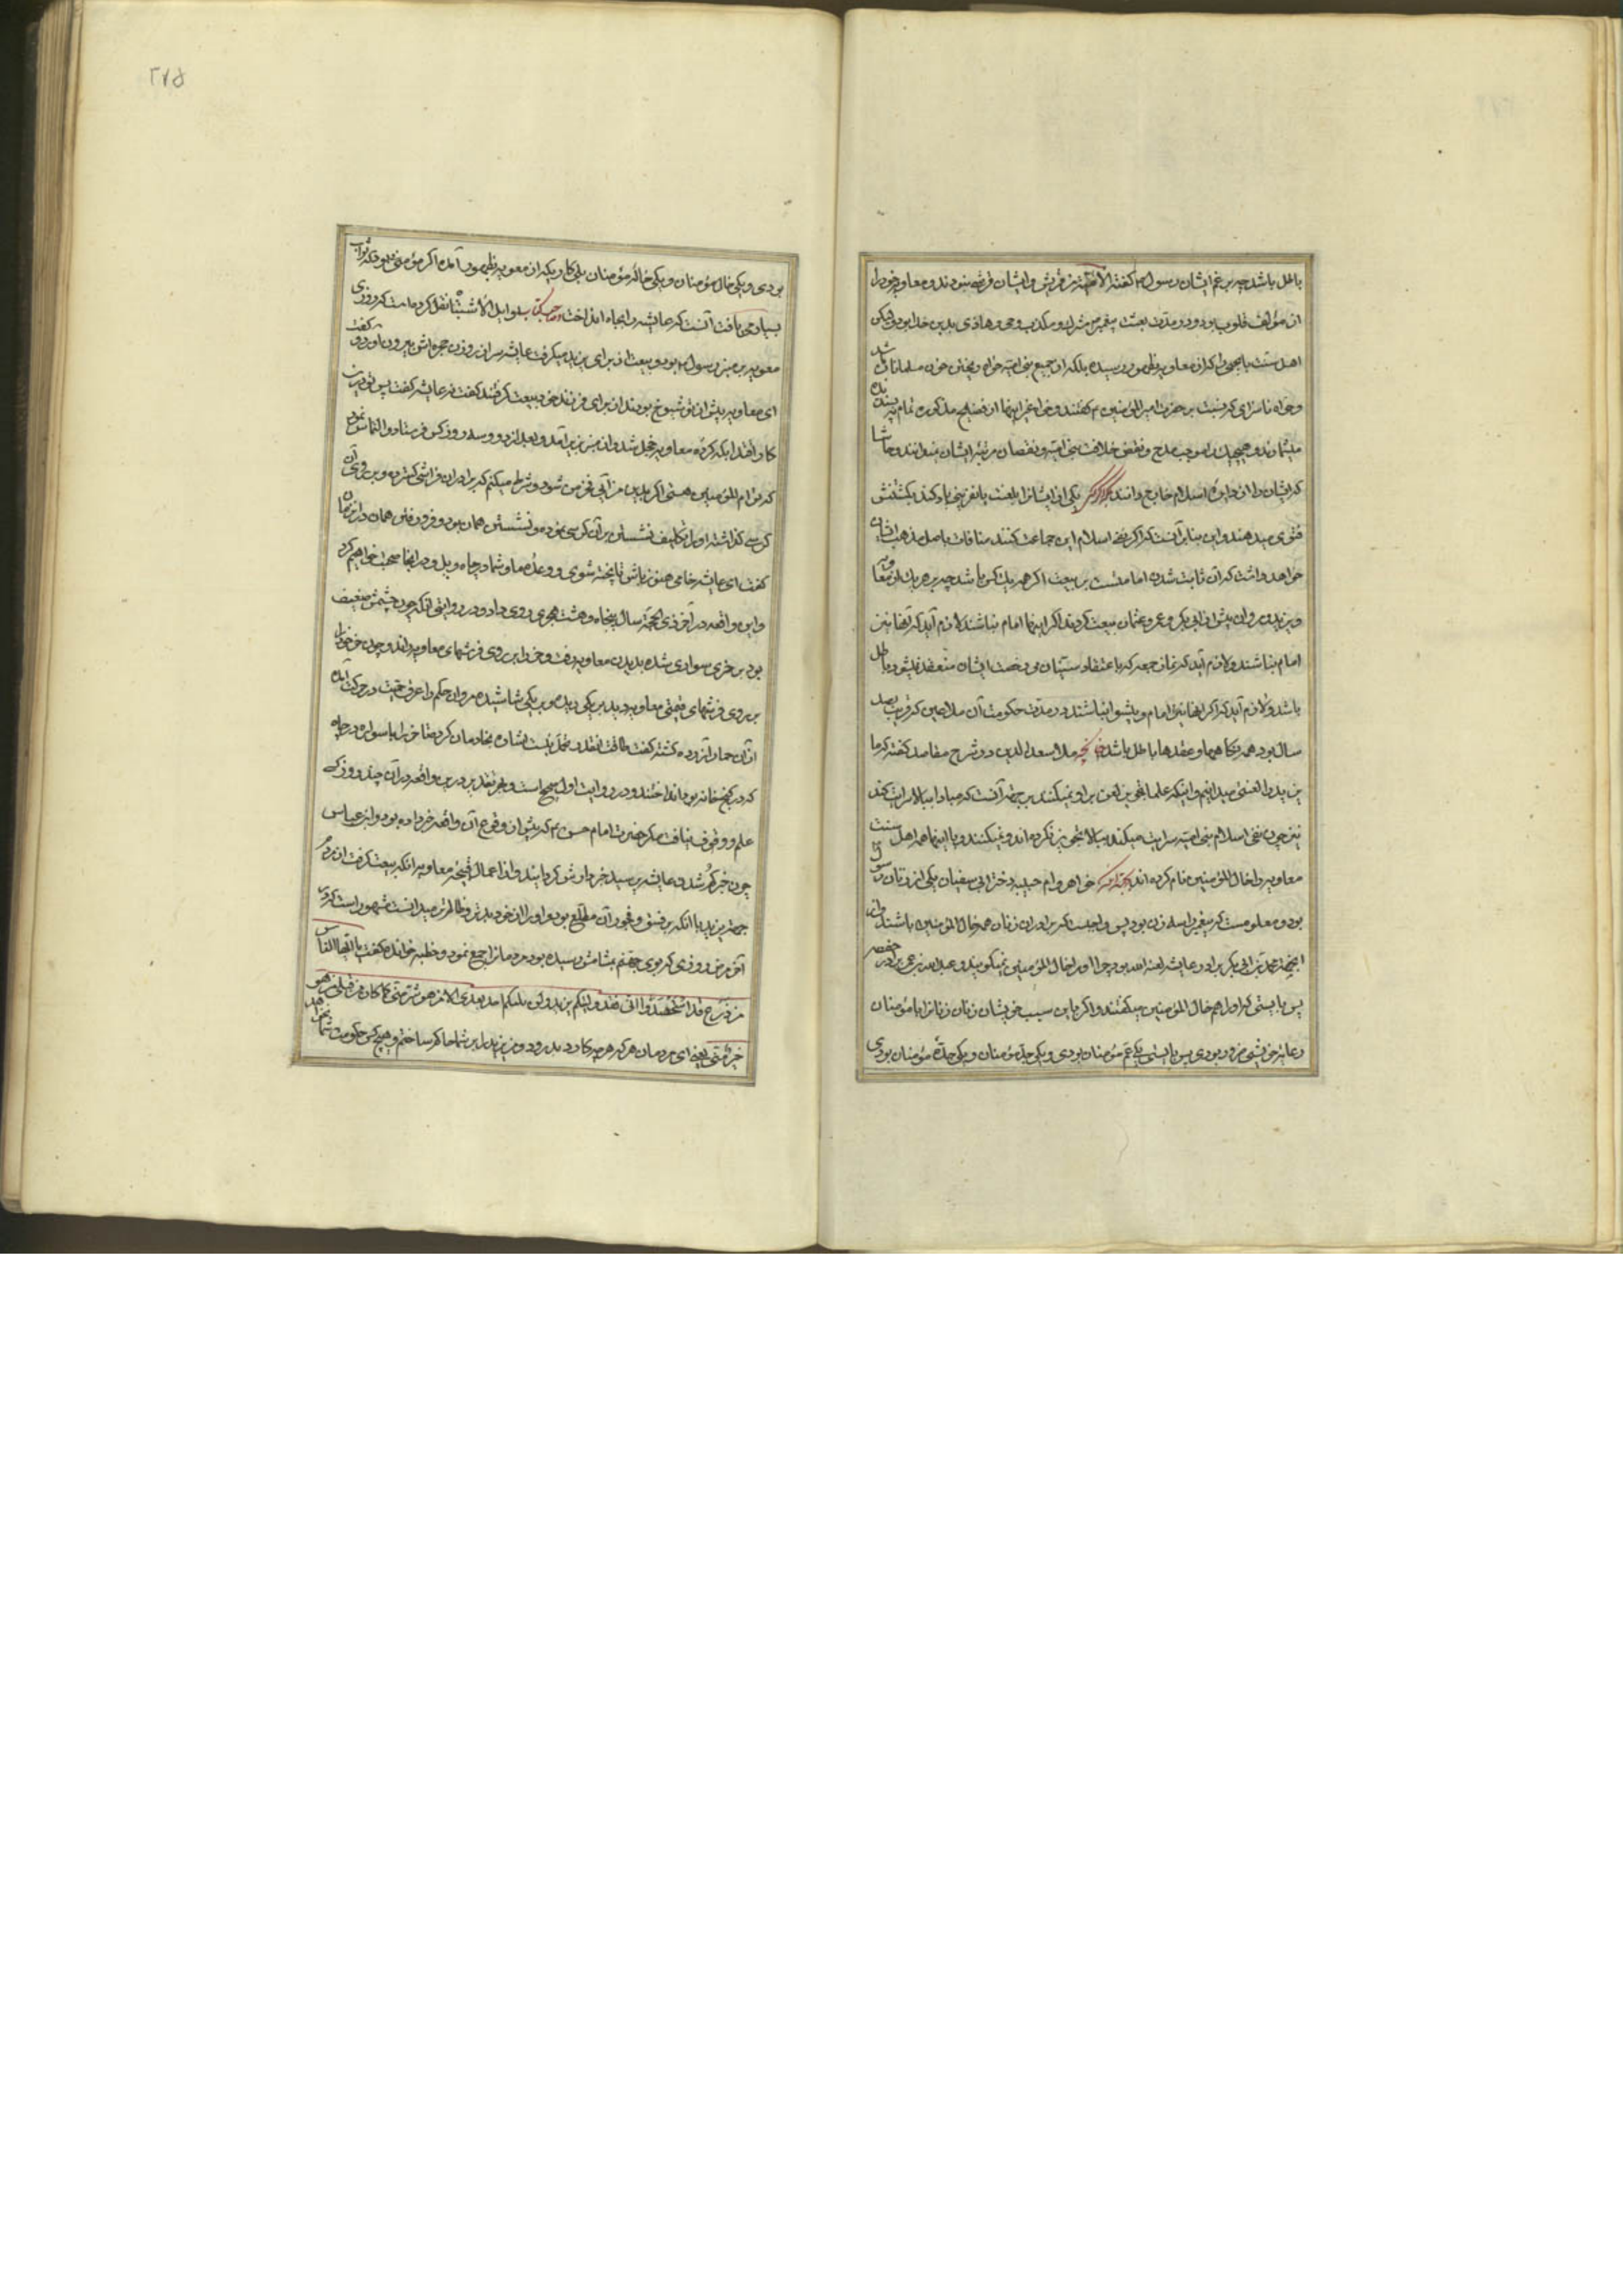 باطل باشد چه بزعم ایشان رسول گفته الأئمة من قریش و ایشان قرشی نبودند و معاویه خود را
از مؤلفه قلوب بود و در مدت بعثت پیغمبر مشرک و مکذب وحی و هاذی بدین خدا بودی
اهل سنت با چیزی که از معاویه بظهور رسیده بلکه از جمیع بنی امیه خواه ریختن خون مسلمانان باشد
و خواه ناسزای که نسبت بر حضرت امیر المؤمنین ع گفتند و خواه غیر اینها از فضایح مذکوره تمام
میشمارند و هیچیک را موجب قدح و نقص خلافت بنی امیه و نقصان مرتبه ایشان نمیدانند و حاشا
که ایشان را از دایره اسلام خارج دانند بلکه اگر یکی ایشانرا بلعنت یا نفرینی یاد کند بکشتنش
فتوی میدهند و این بنا بر آنست که اگر نفی اسلام این جماعت کنند منافات باصل مذهب ایشان
خواهد داشت که آن ثابت شدن امامتست بر بیعت اگر همه یک کس باشد چه بر هر یک از معاویه
و یزید و مروان پیش از ابی بکر و عمر و عثمان بیعت کردند اگر اینها امام نباشند لازم آید که آنها نیز
امام نباشند و لازم آید که نماز جمعه که باعتقاد سنیان بی رخصت ایشان منعقد نمیشود باطل
باشد و لازم آید که اگر آنها نیز امام و پیشوا نباشند در مدت حکومت آن ملاعین که قریب بصد
سال بود همه نکاحها و عقدها باطل باشد چنانچه ملا سعد الدین در شرح مقاصد گفته که ما
یزید را لعنتی میدانیم و اینکه علما تجویز لعن بر او نمیکنند بجهت آنست که مبادا ببالا سرایت کند
نیز چون نفی اسلام بنی امیه سرایت میکند ببالا تجویز نکرده اند و نمیکنند و با اینها همه اهل سنت
معاویه را خال المؤمنین نام کرده اند بجهة آنکه خواهر او ام حبیبه دختر ابی سفیان یکی از زنان رسول
بود و معلومست که پیغمبر را سه زن بود پس واجبست که برادران زنان همه خال المؤمنین باشند
محمد بن ابی بکر برادر عایشه لعنه الله بود چرا او را خال المؤمنین نمیگویند و عبد الله بن عمر برادر حفصه
پس بایستی که او را هم خال المؤمنین میگفتند و اگر باین سبب خویشان زنان را با مؤمنان
رعایت خویشی ضرور بودی پس بایستی یکی عم مؤمنان بودی و یکی جد مؤمنان و یکی جدّه مؤمنان بودی
٢٧٥
بودی و یکی خال مؤمنان و یکی خاله مؤمنان یکی کار دیگر از معویه بظهور آمده اگر مؤمنی بود ثواب
بسیار می یافت آنست که عایشه را بچاه انداخت صاحب کتاب اوایل الاشتباه نقل کرده است که روزی
معویه بر منبر رسول بود و بیعت از برای یزید میگرفت عایشه سر از روزن حجره اش بیرون آورد و گفت
ای معاویه پیش از تو شیوخ بودند از برای فرزند خود بیعت گرفتند گفت نه عایشه گفت پس تو درین
کار اقتدا بکه کرده معاویه خجل شد و از منبر بزیر آمد و بعد از دو سه روز کس فرستاد و التماس نمود
که تو ام المؤمنین هستی اگر بدین من آیی
کرسی گذاشته او را تکلیف نشستن بر آن کرسی نمود و نشستن همان بود و فرو رفتن همان
گفت ای عایشه خامی هنوز باش تا پخته شوی و وعده ما و شما در چاه ویل و در آنجا صحبت خواهیم کرد
و این واقعه در آخر ذی الحجة سال پنجاه و هشت هجری روی داد و در روایتی آنکه چون چشمش ضعیف
بود بر خری سواری شده بدیدن معاویه رفت و خر را بر روی فرشهای معاویه راند و چون خر خود را
بر روی فرشهای قیمتی معاویه دید بر یکی ریده و بر یکی شاشیده مروان حکم را عرق حمیت در حرکت آمده
از آن حمار آزرده گشته گفت طاقت اینقدر تحمل نیست اشاره بخادمان کرد تا خر را با سواره در چاه
که در کنج خانه بود انداختند و در روایت اول اصح است و بهر تقدیر درین واقعه در آن چند روز کسی
علم و وقوف نیافت مگر حضرت امام حسین ع که پیش از وقوع آن واقعه خبر داده بود و ابن عباس
چون خبر گم شدن عایشه رسید خبر داوش گردانیدند و از اعمال قبیحه معاویه آنکه بیعت گرفت از مردم
جهت یزید با آنکه بر فسق و فجور آن مطلع بود و او را از خود بدتر و ظالمتر میدانست مشهور است که در
آخر مرض روزی که بوی جهنم بمشامش رسیده بود مردمانرا جمع نمود و خطبه خوانده گفت یا ایها الناس
من زرع قد استحصدوا انی قد ولیتکم یزید و لن یلیکم احد بعدی الا من هو شر منی کما کان من قبلی من هو
خیر منی یعنی ای مردمان هر که هر چه کارد بدرود و من یزید را بر شما حاکم ساختم و هیچکس حکومت شما